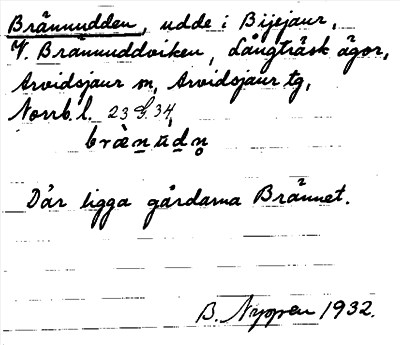 Brännudden, udde i Bijejaur,
V. Brännuddviken, Långträsk ägor,
Arvidsjaur sn, Arvidsjaur tg,
Norrb. l. 23 I. 34,
bræ̀nu̇dn̥
Där ligga gårdarna Brännet.
B. Nyppen 1932.